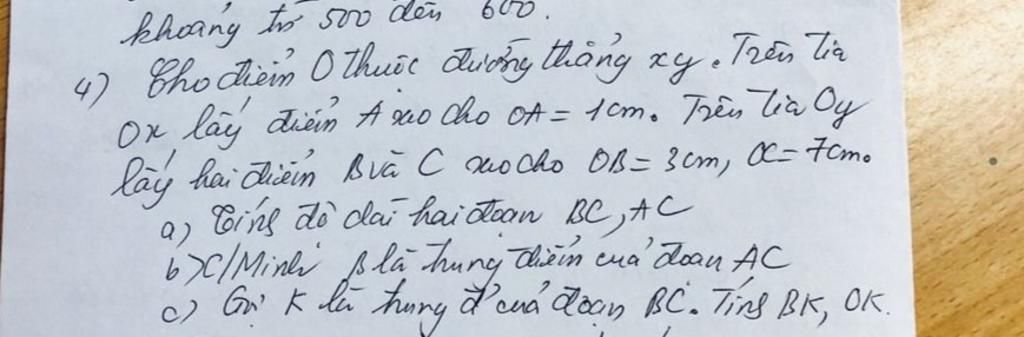 khoảng từ 500 đến 600.
4) Cho điểm O thuộc đường thẳng xy. Trên tia
Ox lấy điểm A sao cho OA = 1cm. Trên tia Oy
lấy hai điểm B và C sao cho OB = 3cm, OC = 7cm.
a) Tính độ dài hai đoạn BC, AC
b) C/Minh B là trung điểm của đoạn AC
c) Gọi K là trung đ' của đoạn BC. Tính BK, OK.